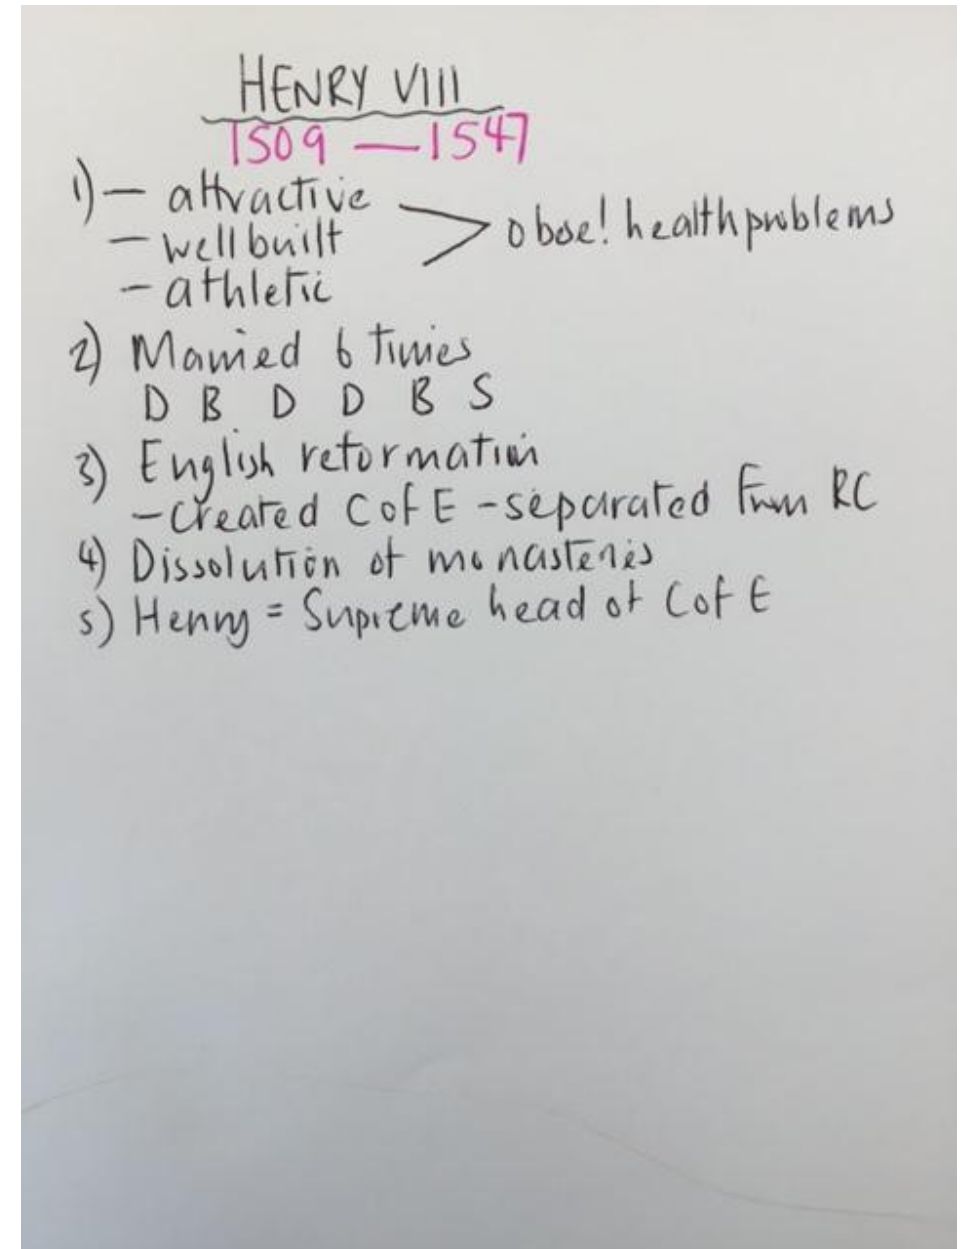 HENRY VIII
1509 — 1547
1) – attractive
– well built > obese! health problems
– athletic
2) Married 6 times
D B D D B S
3) English reformation
– Created C of E – separated from RC
4) Dissolution of monasteries
5) Henry = Supreme head of C of E